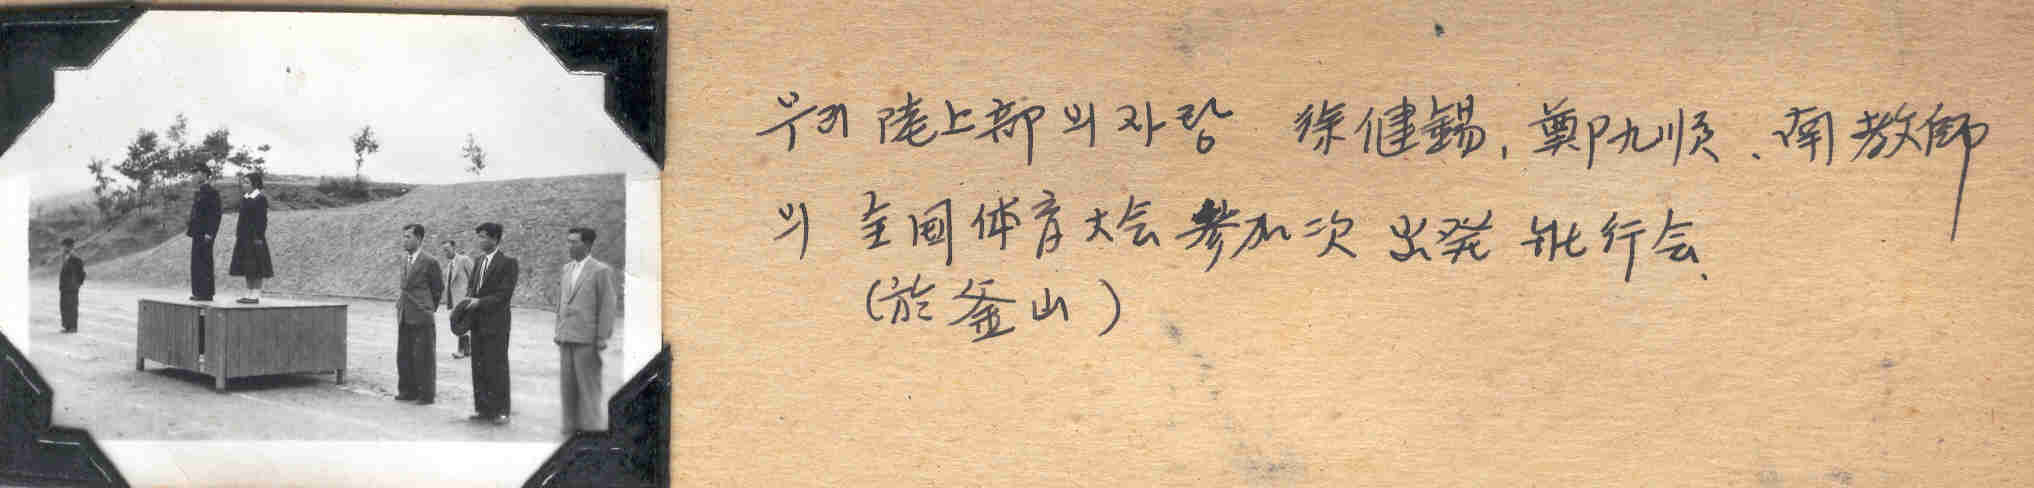 우리 陸上部의 자랑 徐健錫, 鄭九順, 南教師
의 全国体育大会 參加次 出発 行会.
(於 釜山)